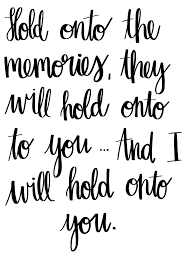 Hold onto the
memories, they
will hold onto
to you ... And I
will hold onto
you.